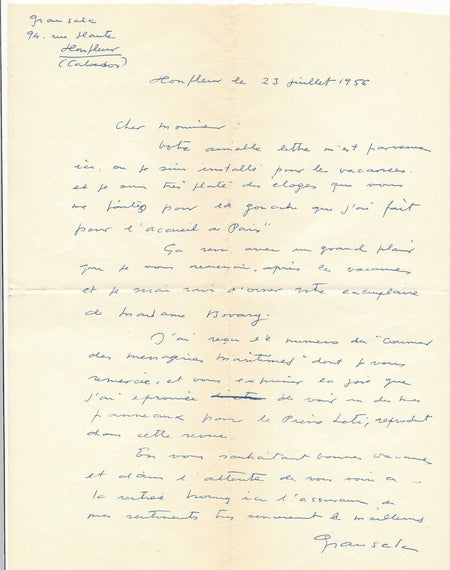 Grau Sala
94. rue Haute
Honfleur
(Calvados)
Honfleur le 23 juillet 1956
Cher Monsieur:
Votre aimable lettre m'est parvenue
ici. ou je suis installé pour les vacances.
et je suis très flaté des éloges que vous
me faites pour la gouache que j'ai fait
pour l'accueil de Paris"
Ça sera avec un grand plaisir
que je vous reverrai, après les vacances
et je serai ravi d'orner votre exemplaire
de Madame Bovary.
J'ai reçu le numero du "Courrier
des messageries maritimes" dont je vous
remercie, et vous exprimer la joie que
j'ai eprouvée de voir un des mes
panneaux pour le Pierre Loti, reproduit
dans cette revue.
En vous souhaitant bonnes vacances
et dans l'attente de vous voir a
la rentrée ici l'assurance de
mes sentiments très sincerement le meilleurs
Grau Sala